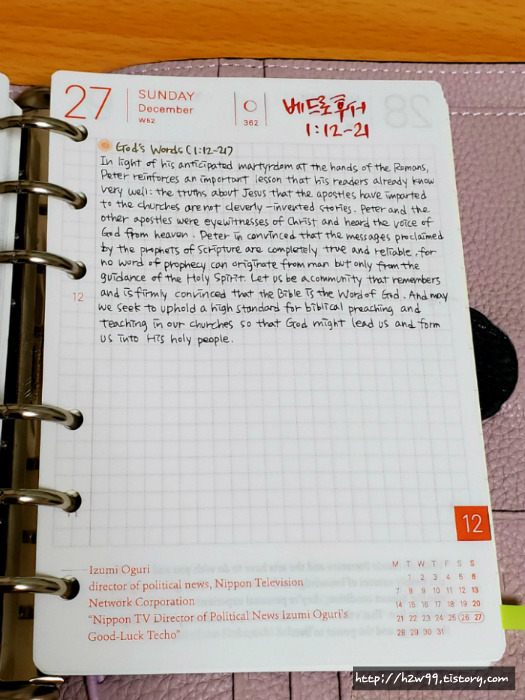 27
SUNDAY
December
W52
362
베드로후서
1:12-21
28
God's Words (1:12-21)
In light of his anticipated martyrdom at the hands of the Romans,
Peter reinforces an important lesson that his readers already know
very well: the truths about Jesus that the apostles have imparted
to the churches are not cleverly-invented stories. Peter and the
other apostles were eyewitnesses of Christ and heard the voice of
God from heaven. Peter is convinced that the messages proclaimed
by the prophets of Scripture are completely true and reliable, for
no word of prophecy can originate from man but only from the
guidance of the Holy Spirit. Let us be a community that remembers
12
and is firmly convinced that the Bible is the Word of God. And may
we seek to uphold a high standard for biblical preaching and
teaching in our churches so that God might lead us and form
us into His holy people.
12
Izumi Oguri
director of political news, Nippon Television
Network Corporation
"Nippon TV Director of Political News Izumi Oguri's
Good-Luck Techo"
M T W T F S S
1 2 3 4 5 6
7 8 9 10 11 12 13
14 15 16 17 18 19 20
21 22 23 24 25 26 27
28 29 30 31
http://h2w99.tistory.com